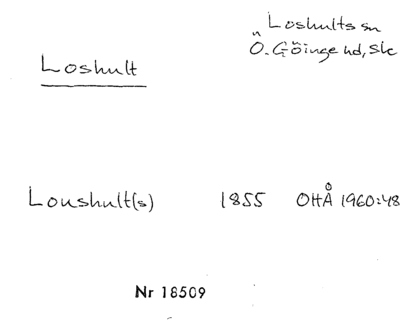 Loshults sn
Ö. Göinge hd, Sk
Loshult
Loushult(s) 1855 OHÅ 1960:48
Nr 18509